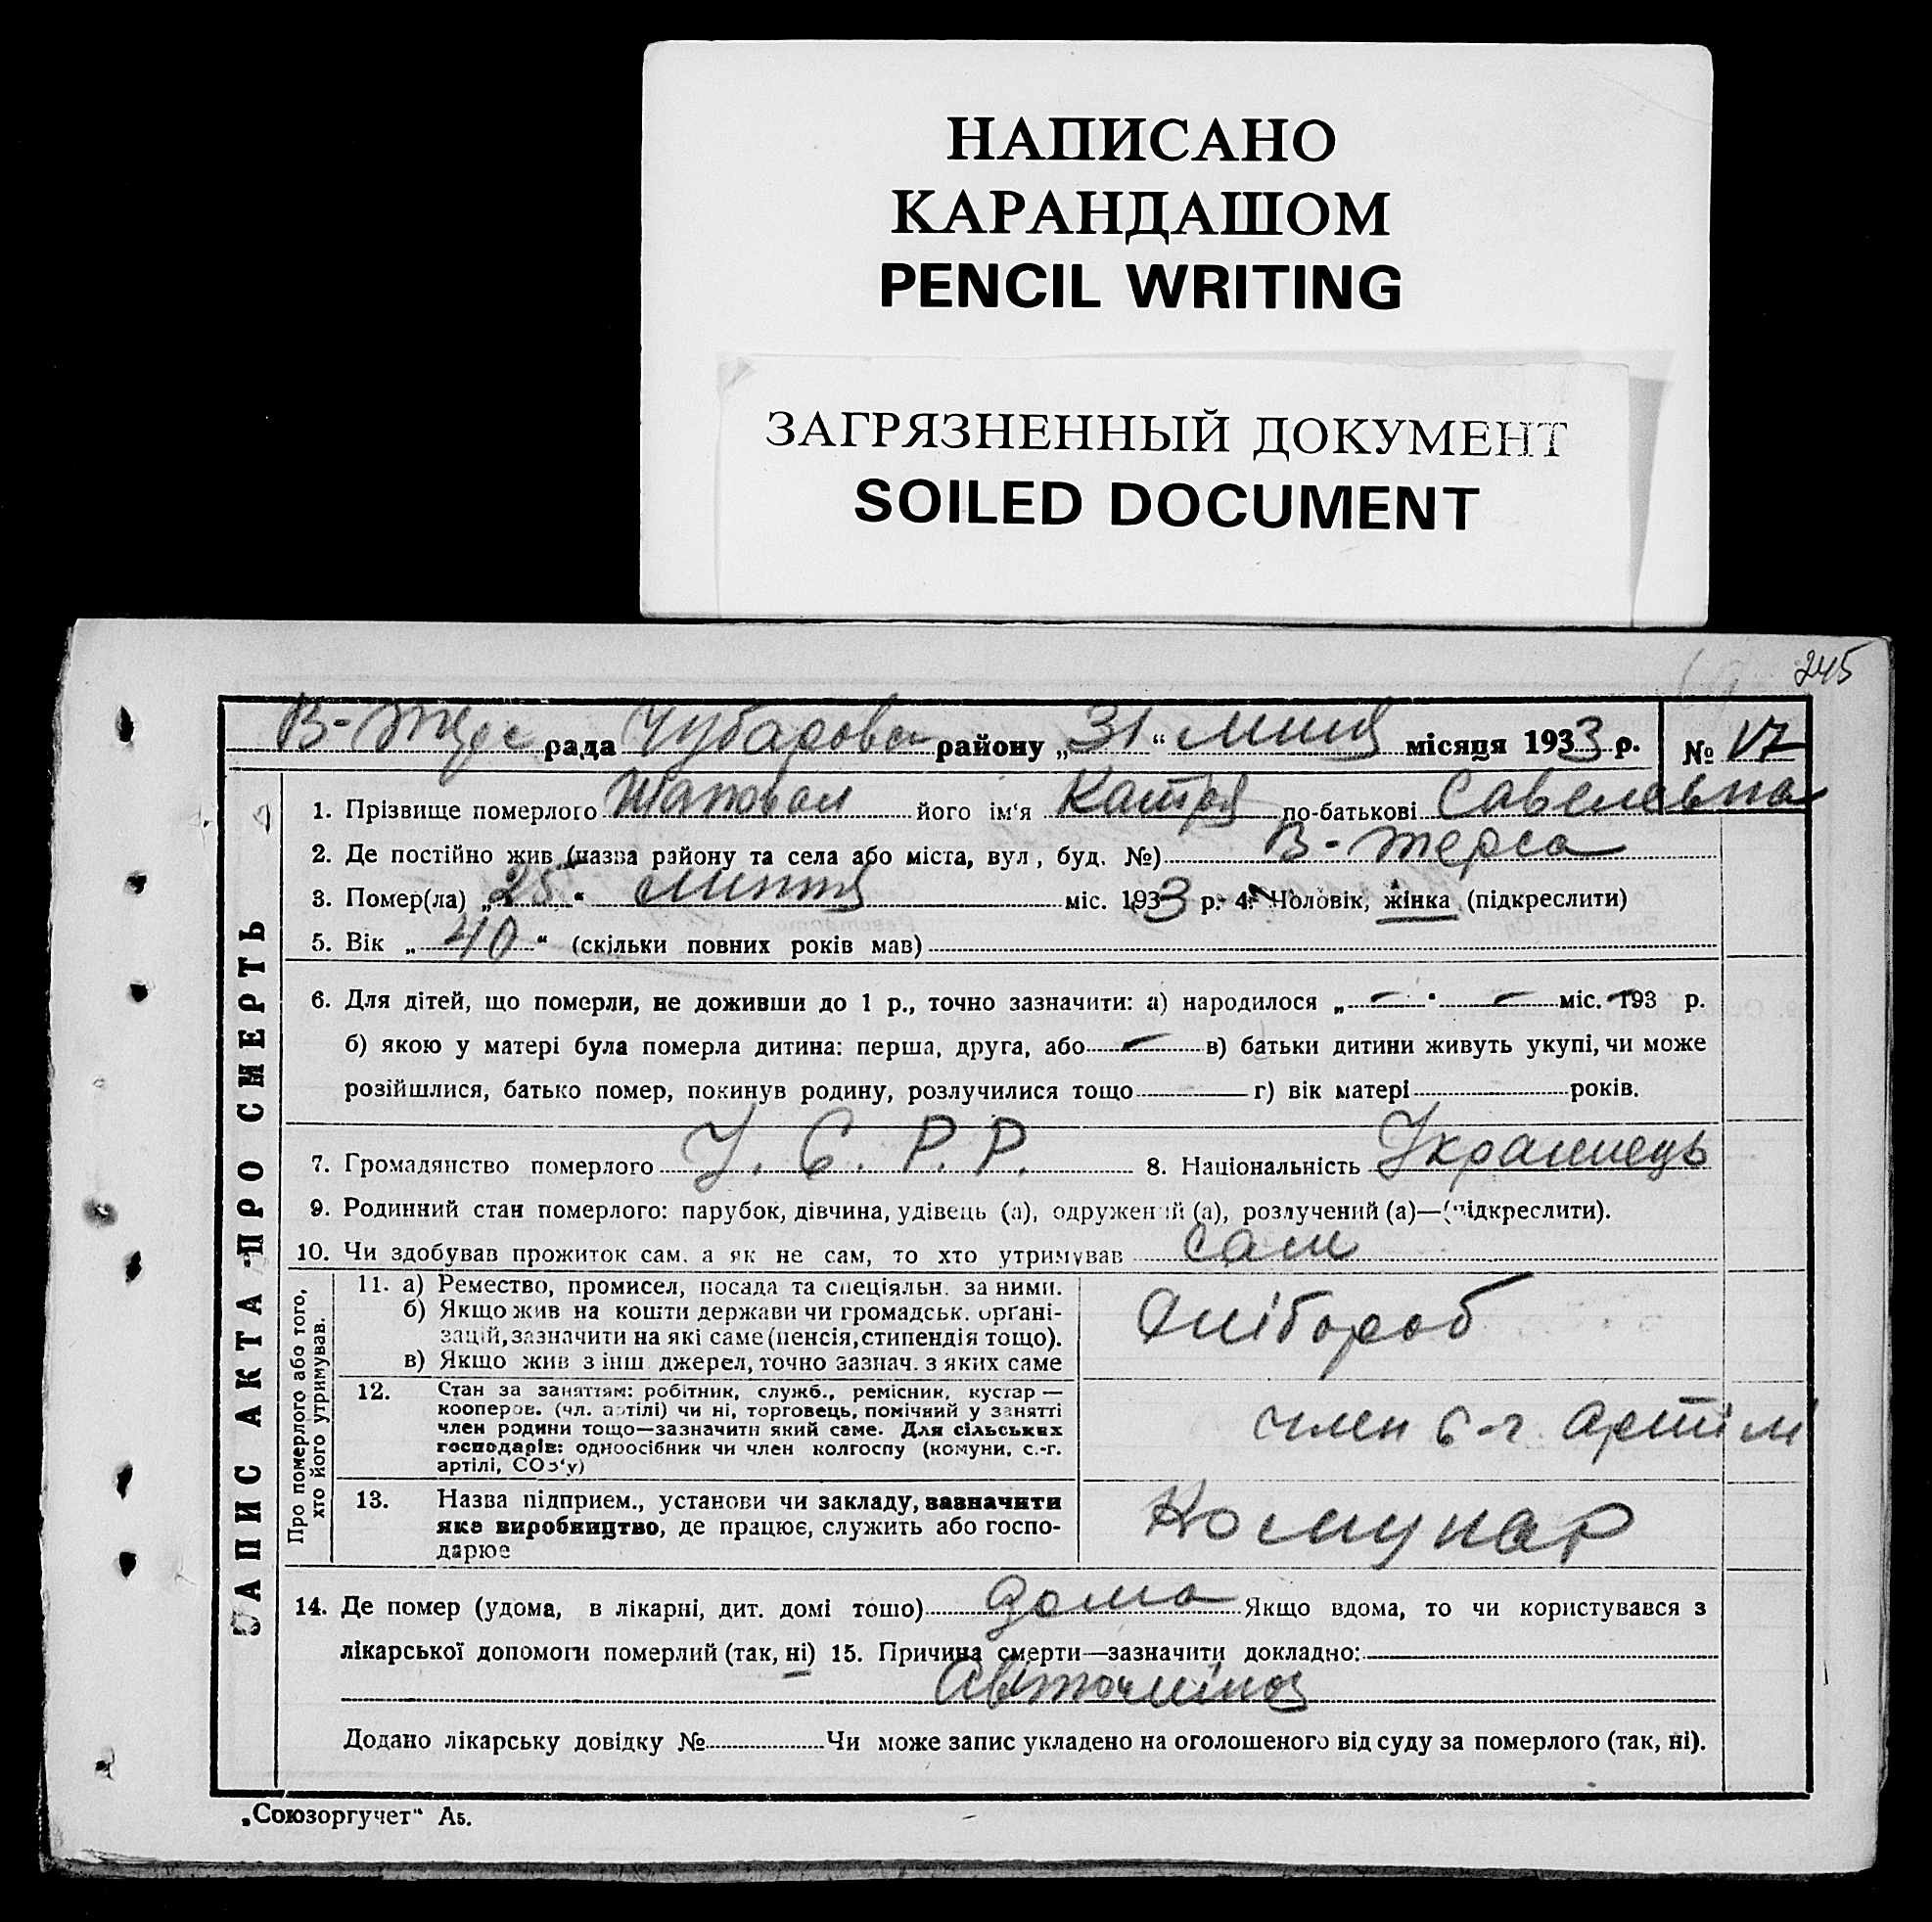 НАПИСАНО
КАРАНДАШОМ
PENCIL WRITING
ЗАГРЯЗНЕННЫЙ ДОКУМЕНТ
SOILED DOCUMENT
245
В-Терс рада Чубаровск району „31“ липня місяця 1933 р. № 17
ЗАПИС АКТА ПРО СМЕРТЬ
1. Прізвище померлого Шаповал його ім‘я Катря по-батькові Савелевна
2. Де постійно жив (назва району та села або міста, вул, буд. №) В-Терса
3. Помер(ла) „25“ липня міс. 1933 р. 4. Чоловік, жінка (підкреслити)
5. Вік „40“ (скільки повних років мав)
6. Для дітей, що померли, не доживши до 1 р., точно зазначити: а) народилося „—“ — міс. 193 р.
б) якою у матері була померла дитина: перша, друга, або — в) батьки дитини живуть укупі, чи може
розійшлися, батько помер, покинув родину, розлучилися тощо г) вік матері років.
7. Громадянство померлого У. С. Р. Р. 8. Національність Українець
9. Родинний стан померлого: парубок, дівчина, удівець (а), одружений (а), розлучений (а)—(підкреслити).
10. Чи здобував прожиток сам, а як не сам, то хто утримував сам
Про померлого або того,
хто його утримував.
11. а) Ремество, промисел, посада та спеціяльн. за ними.
б) Якщо жив на кошти держави чи громадськ. орґані-
зацій, зазначити на які саме (пенсія, стипендія тощо).
в) Якщо жив з інш джерел, точно зазнач. з яких саме
Хлібороб
12. Стан за заняттям: робітник, служб., ремісник, кустар —
кооперов. (чл. артілі) чи ні, торговець, помічний у занятті
член родини тощо—зазначити який саме. Для сільських
господарів: одноосібник чи член колгоспу (комуни, с.-г.
артілі, СОЗ‘у)
член с-г артілі
13. Назва підприєм., установи чи закладу, зазначити
яке виробництво, де працює, служить або госпо-
дарює
Комунар
14. Де помер (удома, в лікарні, дит. домі тощо) дома Якщо вдома, то чи користувався з
лікарської допомоги померлий (так, ні) 15. Причина смерти—зазначити докладно:
Додано лікарську довідку № Чи може запис укладено на оголошеного від суду за померлого (так, ні).
„Союзоргучет“ А5.